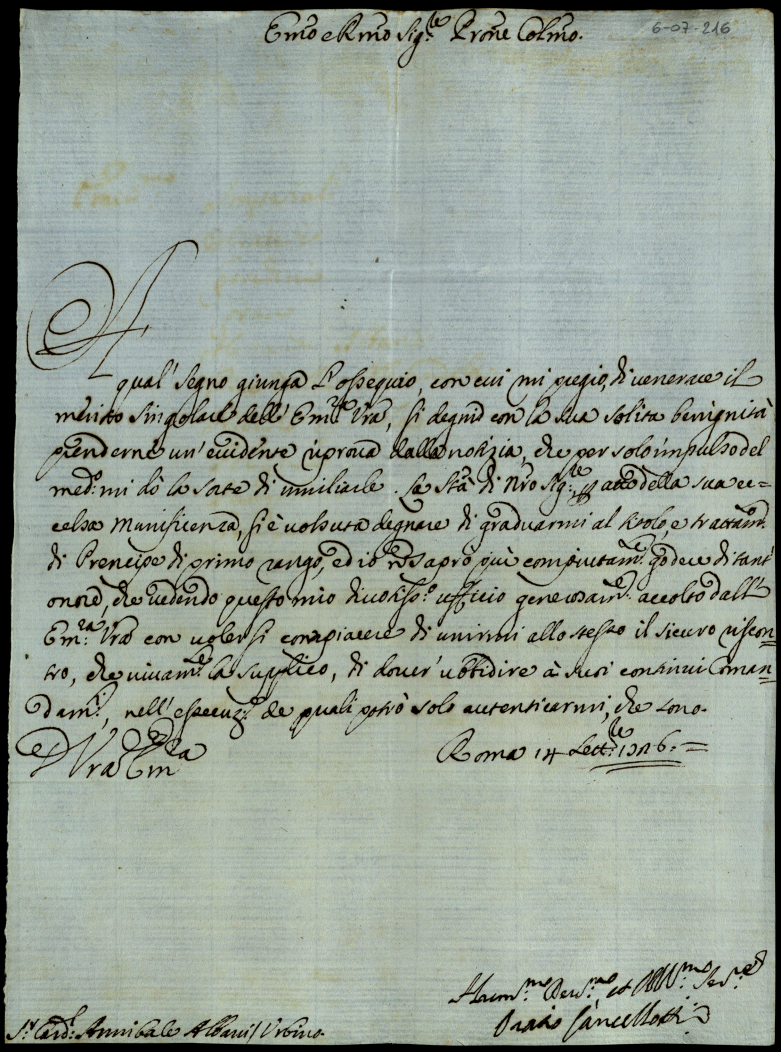 6-07-216
Emo e Rmo Sig.re Prone Colmo.
A
qual' segno giunga l'ossequio, con cui mi pregio, di venerare il
merito singolare dell' Em.za Vra, si degni con la sua solita benignità
prenderne un' evidente riprova dalla notizia, che per solo impulso del
med.o mi dò la sorte di umiliarle. La Stà di Nro Sig.re atto della sua ec=
celsa Munificenza, si è voluta degnare di graduarmi al titolo, e trattam.
di Prencipe di primo rango, ed io non saprò più compiutam.e godere di tant'
onore, che vedendo questo mio divotiss.o ufficio generosam.e accolto dall'
Em.za Vra con volersi compiacere di unirmi allo stesso il sicuro riscon=
tro, che vivam.e la supplico, di dover' ubbidire à suoi continui Coman=
dam.i, nell' esecuz.e de quali potrò solo autenticarmi, che sono.
D Vra Em.za
Roma 14 Sett.re 1726.=
Hum.mo Dev.mo et Obb.mo Ser.re
Orazio Lancellotti
S.r Card.l Annibale Albani / Urbino.